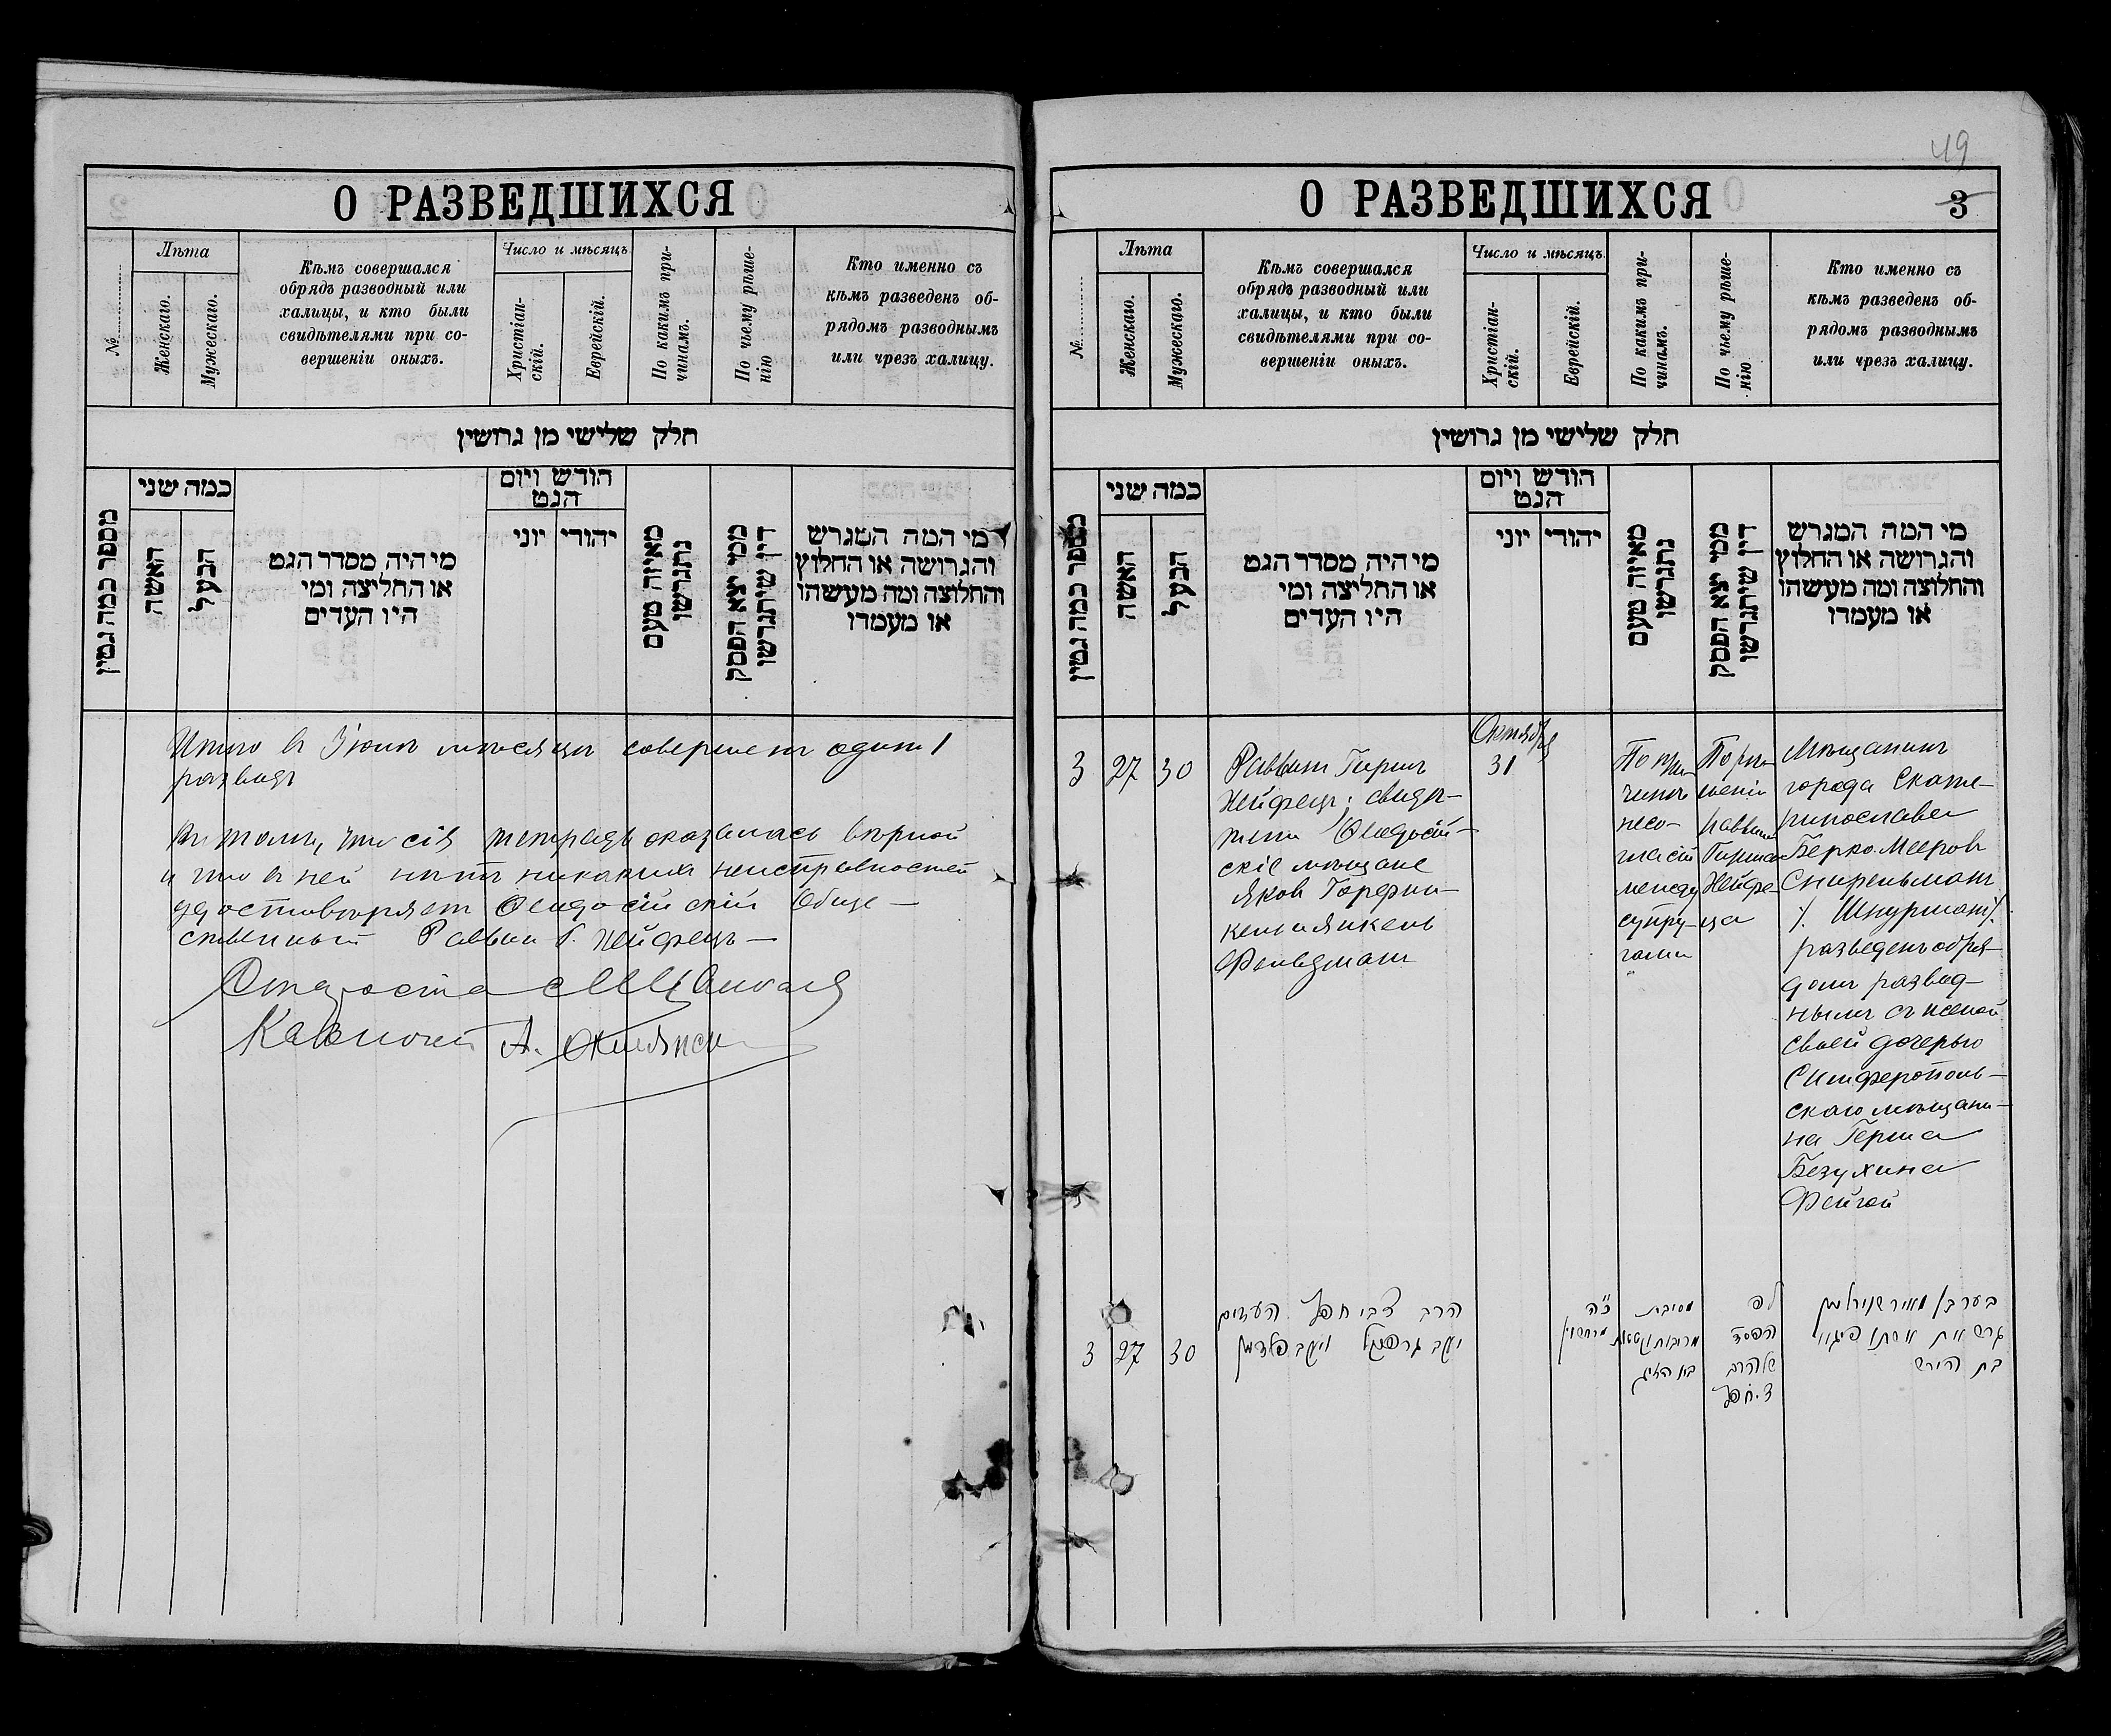 О РАЗВЕДШИХСЯ
№
Лѣта
Женскаго.
Мужескаго.
Кѣмъ совершался
обрядъ разводный или
халицы, и кто были
свидѣтелями при со-
вершеніи оныхъ.
Число и мѣсяцъ
Христіан-
скій.
Еврейскій.
По какимъ при-
чинамъ.
По чьему рѣше-
нію
Кто именно съ
кѣмъ разведенъ об-
рядомъ разводнымъ
или чрезъ халицу.
חלק שלישי מן גרושין
מספר כמה גטין
כמה שני
האשה
הבעל
מי היה מסדר הגט
או החליצה ומי
היו העדים
חודש ויום
הגט
יוני
יהודי
מאיזה טעם
נתגרשו
ממי יצא הפסק
דין שיתגרשו
מי המה המגרש
והגרושה או החלוץ
והחלוצה ומה מעשהו
או מעמדו
Итого въ Іюнѣ мѣсяцѣ совершенъ одинъ 1
разводъ
Въ томъ, что сія тетрадь оказалась вѣрной
и что въ ней нѣтъ никакихъ неисправностей
удостовѣряетъ Ѳеодосійскій Обще-
ственный Раввинъ Г. Хейфецъ
Староста
Казначей А.
49
О РАЗВЕДШИХСЯ
3
№
Лѣта
Женскаго.
Мужескаго.
Кѣмъ совершался
обрядъ разводный или
халицы, и кто были
свидѣтелями при со-
вершеніи оныхъ.
Число и мѣсяцъ.
Христіан-
скій.
Еврейскій.
По какимъ при-
чинамъ.
По чьему рѣше-
нію.
Кто именно съ
кѣмъ разведенъ об-
рядомъ разводнымъ
или чрезъ халицу.
חלק שלישי מן גרושין
מספר כמה גטין
כמה שני
האשה
הבעל
מי היה מסדר הגט
או החליצה ומי
היו העדים
חודש ויום
הגט
יוני
יהודי
מאיזה טעם
נתגרשו
ממי יצא הפסק
דין שיתגרשו
מי המה המגרש
והגרושה או החלוץ
והחלוצה ומה מעשהו
או מעמדו
3
27
30
Раввинъ Гиршъ
Хейфецъ; свидѣ-
тели Ѳеодосій-
скіе мѣщане
Яковъ Горфин-
кель и Янкель
Фельдманъ
Октября
31
По при-
чинѣ
несо-
гласій
между
супру-
гами
По рѣ-
шенію
раввина
Гирша
Хейфе-
ца
Мѣщанинъ
города Екате-
ринослава
Берко Мееровъ
/. Шнурманъ/.
разведенъ обря-
домъ развод-
нымъ съ женой
своей дочерью
Симферополь-
скаго мѣщани-
на Герша
Безухина
Фейгой
3
27
30
הרב צבי חפץ העדים
יעקב גרפינקל ויעקב פלדמן
כ"ה
מרחשון
מסיבת
לפי
הפסד
של הרב
צ. חפץ
גרש את אשתו פיגא
בת הירש